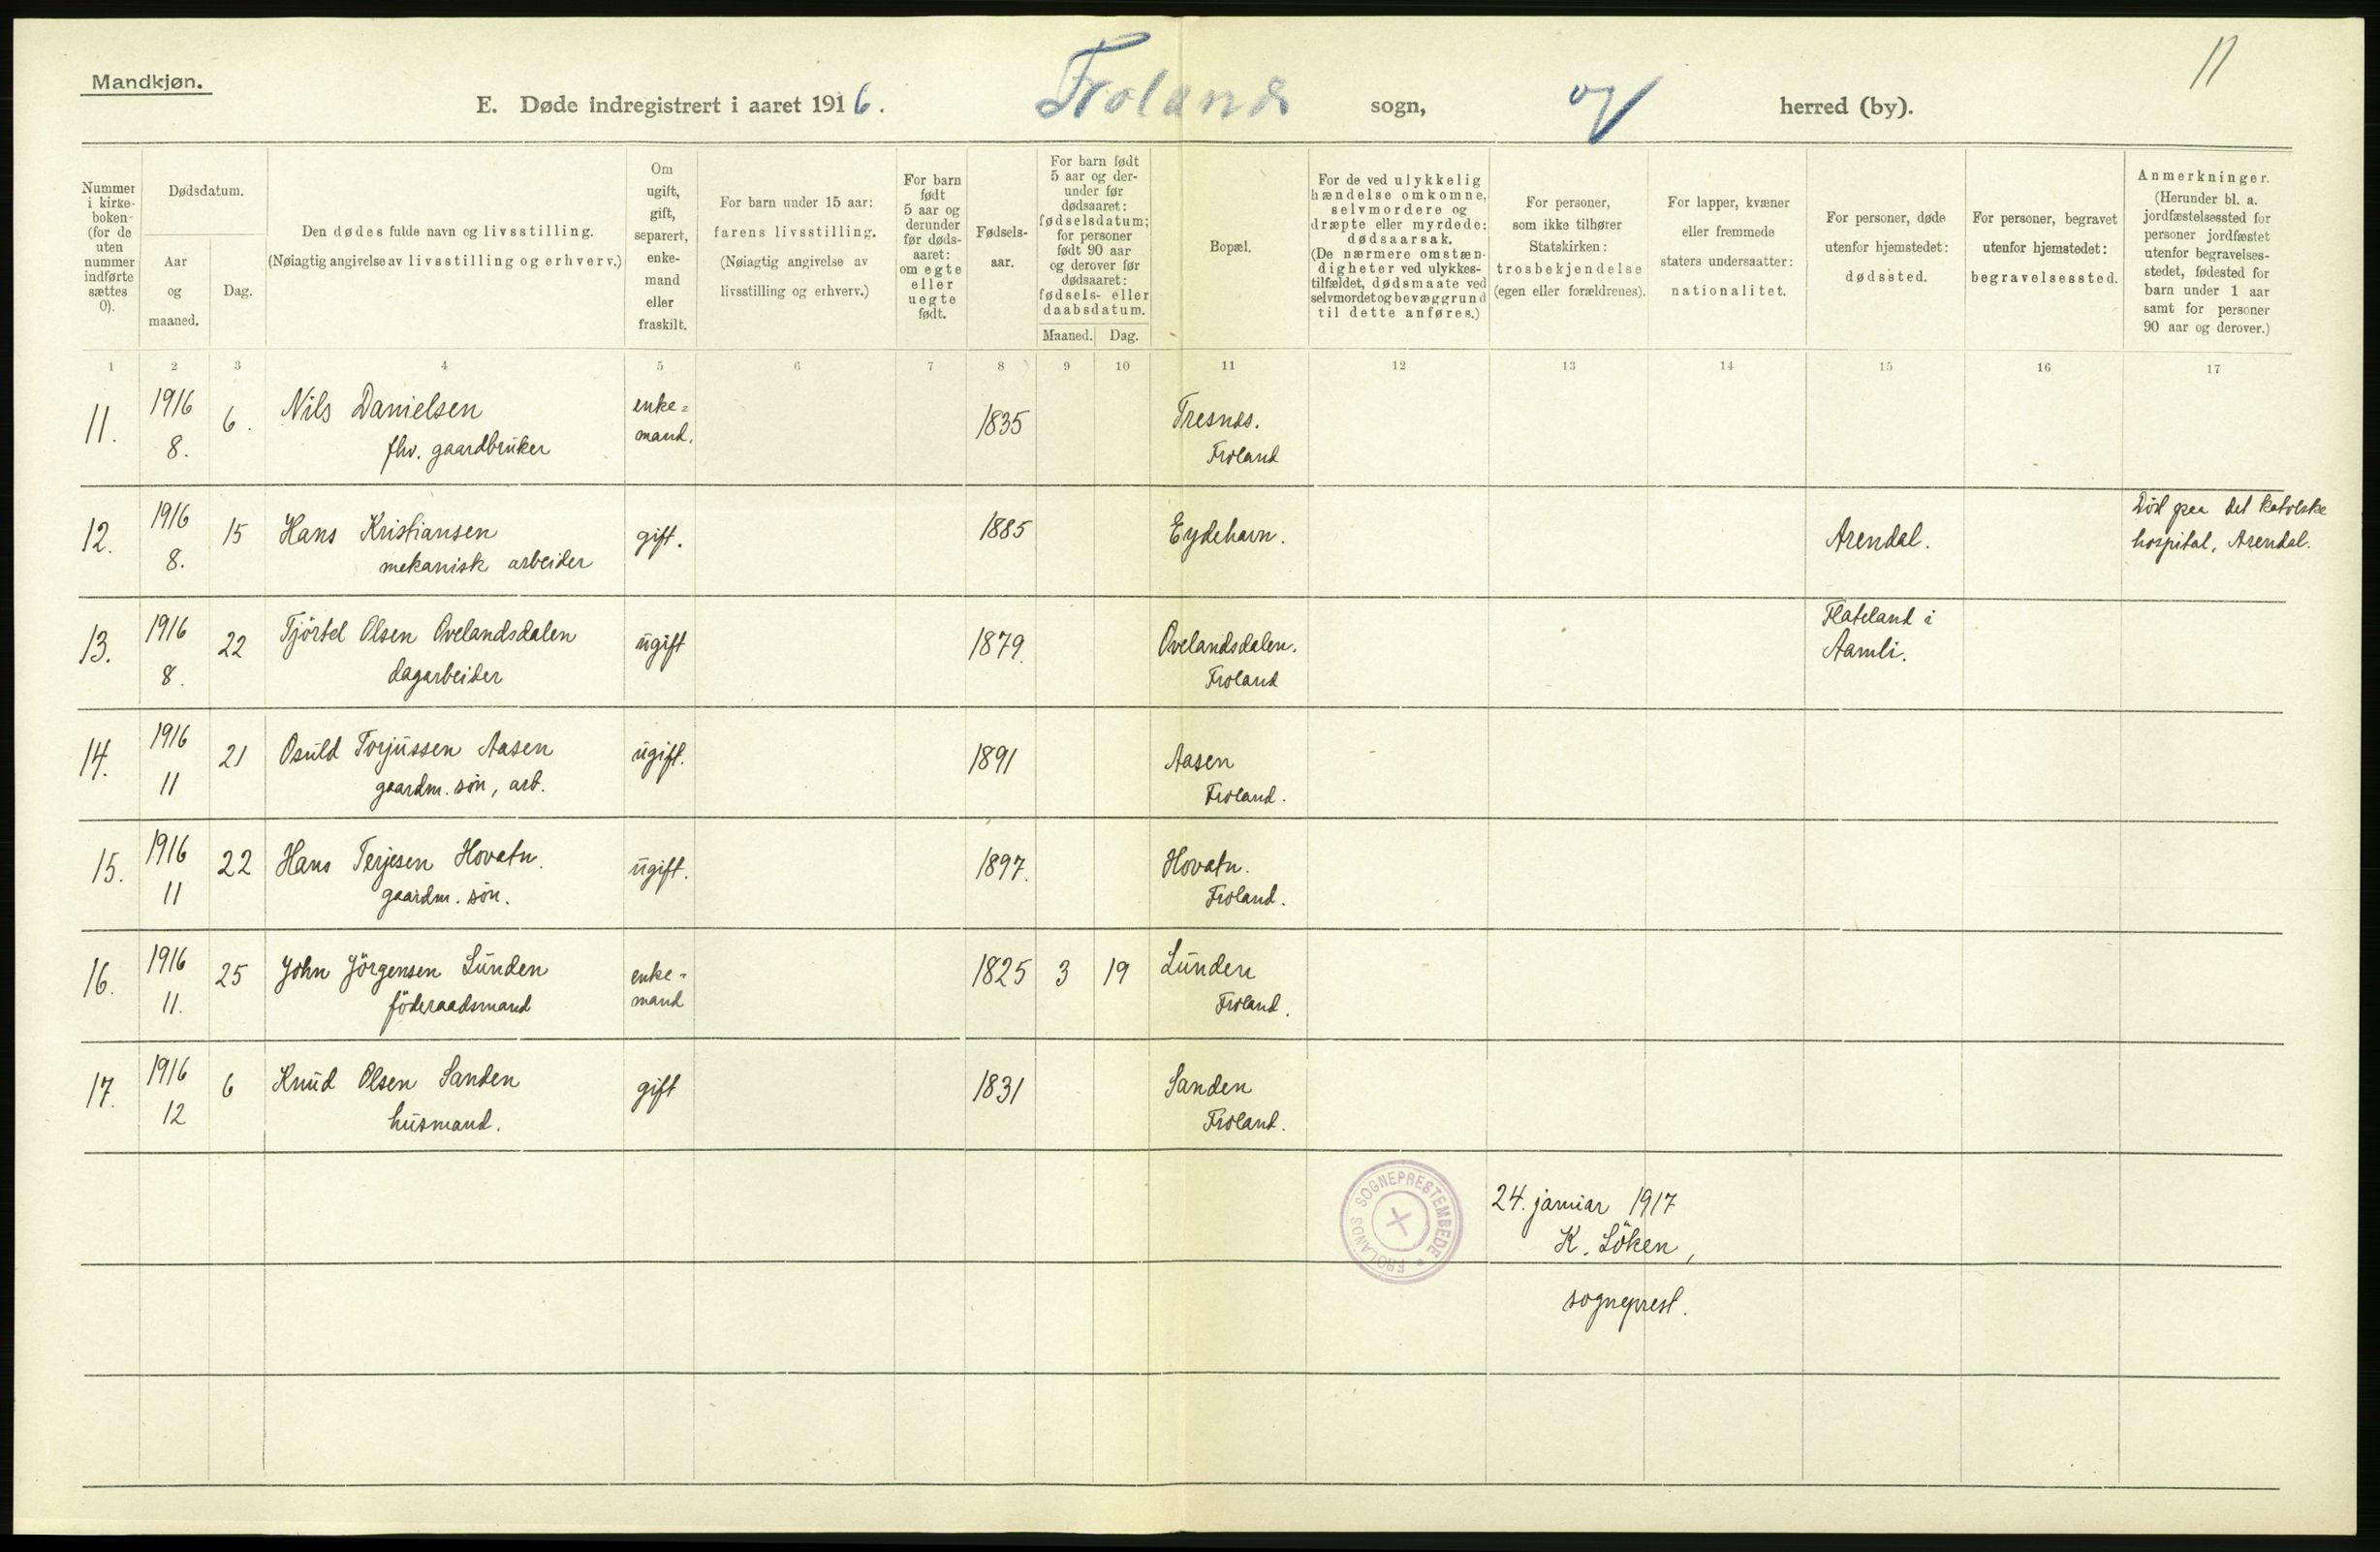 Mandkjøn.
11
E. Døde indregistrert i aaret 1916.
Frolands sogn, og herred (by).
Nummer i kirke-boken (for de uten nummer indførte sættes 0).
Dødsdatum.
Aar og maaned.
Dag.
Den dødes fulde navn og livsstilling.
(Nøiagtig angivelse av livsstilling og erhverv.)
Om ugift, gift, separert, enke-mand eller fraskilt.
For barn under 15 aar:
farens livsstilling.
(Nøiagtig angivelse av livsstilling og erhverv.)
For barn født 5 aar og derunder før døds-aaret: om egte eller uegte født.
Fødsels-aar.
For barn født 5 aar og der-under før dødsaaret: fødselsdatum; for personer født 90 aar og derover før dødsaaret: fødsels- eller daabsdatum.
Maaned. Dag.
Bopæl.
For de ved ulykkelig hændelse omkomne, selvmordere og dræpte eller myrdede: dødsaarsak.
(De nærmere omstæn-digheter ved ulykkes-tilfældet, dødsmaate ved selvmordet og bevæggrund til dette anføres.)
For personer, som ikke tilhører Statskirken: trosbekjendelse (egen eller forældrenes).
For lapper, kvæner eller fremmede staters undersaatter: nationalitet.
For personer, døde utenfor hjemstedet: dødssted.
For personer, begravet utenfor hjemstedet: begravelsessted.
Anmerkninger.
(Herunder bl. a. jordfæstelsessted for personer jordfæstet utenfor begravelses-stedet, fødested for barn under 1 aar samt for personer 90 aar og derover.)
1 2 3 4 5 6 7 8 9 10 11 12 13 14 15 16 17
11. 1916 6. Nils Danielsen enke= 1835 Tresnes.
8. fhv. gaardbruker mand. Froland
12. 1916 15 Hans Kristiansen gift. 1885 Eydehavn. Arendal. Död paa det katolske
8. mekanisk arbeider hospital, Arendal.
13. 1916 22 Tjörtel Olsen Ovelandsdalen ugift 1879. Ovelandsdalen. Flateland i
8. dagarbeider Froland Aamli.
14. 1916 21 Osuld Torjussen Aasen ugift. 1891 Aasen
11 gaardm. sön, arb. Froland.
15. 1916 22 Hans Terjesen Hovatn. ugift. 1897. Hovatn.
11 gaardm. sön. Froland.
16. 1916 25 John Jörgensen Lunden enke= 1825 3 19 Lunden
11. föderaadsmand mand Froland.
17. 1916 6 Knud Olsen Sanden gift 1831 Sanden
12 husmand. Froland.
FROLANDS SOGNEPRESTEMBEDE
24. januar 1917
K. Löken,
sogneprest.